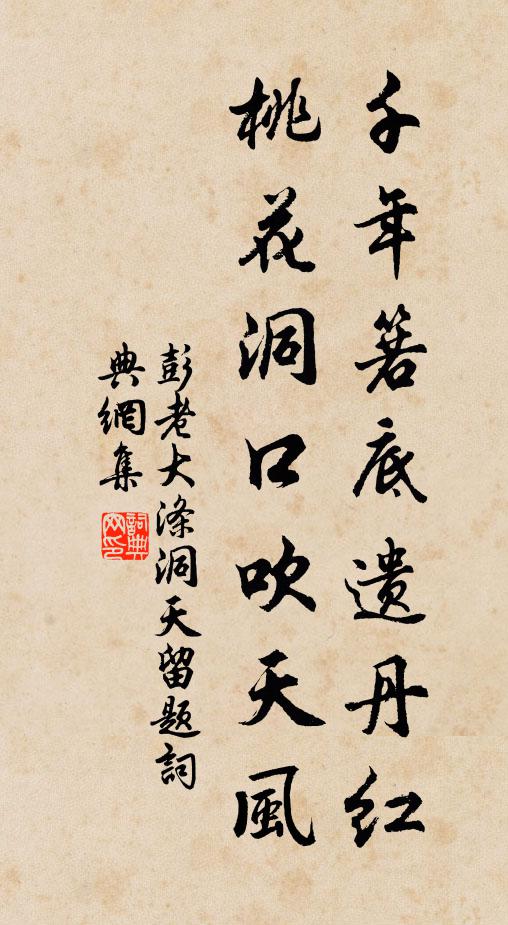 千年箬底遗丹红
桃花洞口吹天風
彭老大滌洞天留題詞
典網集
詞典网印